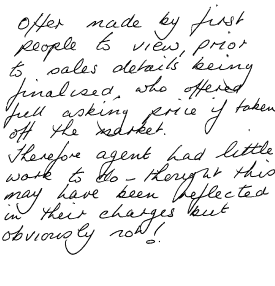 Offer made by first
people to view, prior
to sales details being
finalised, who offered
full asking price if taken
off the market.
Therefore agent had little
work to do - thought this
may have been reflected
in their charges but
obviously not!